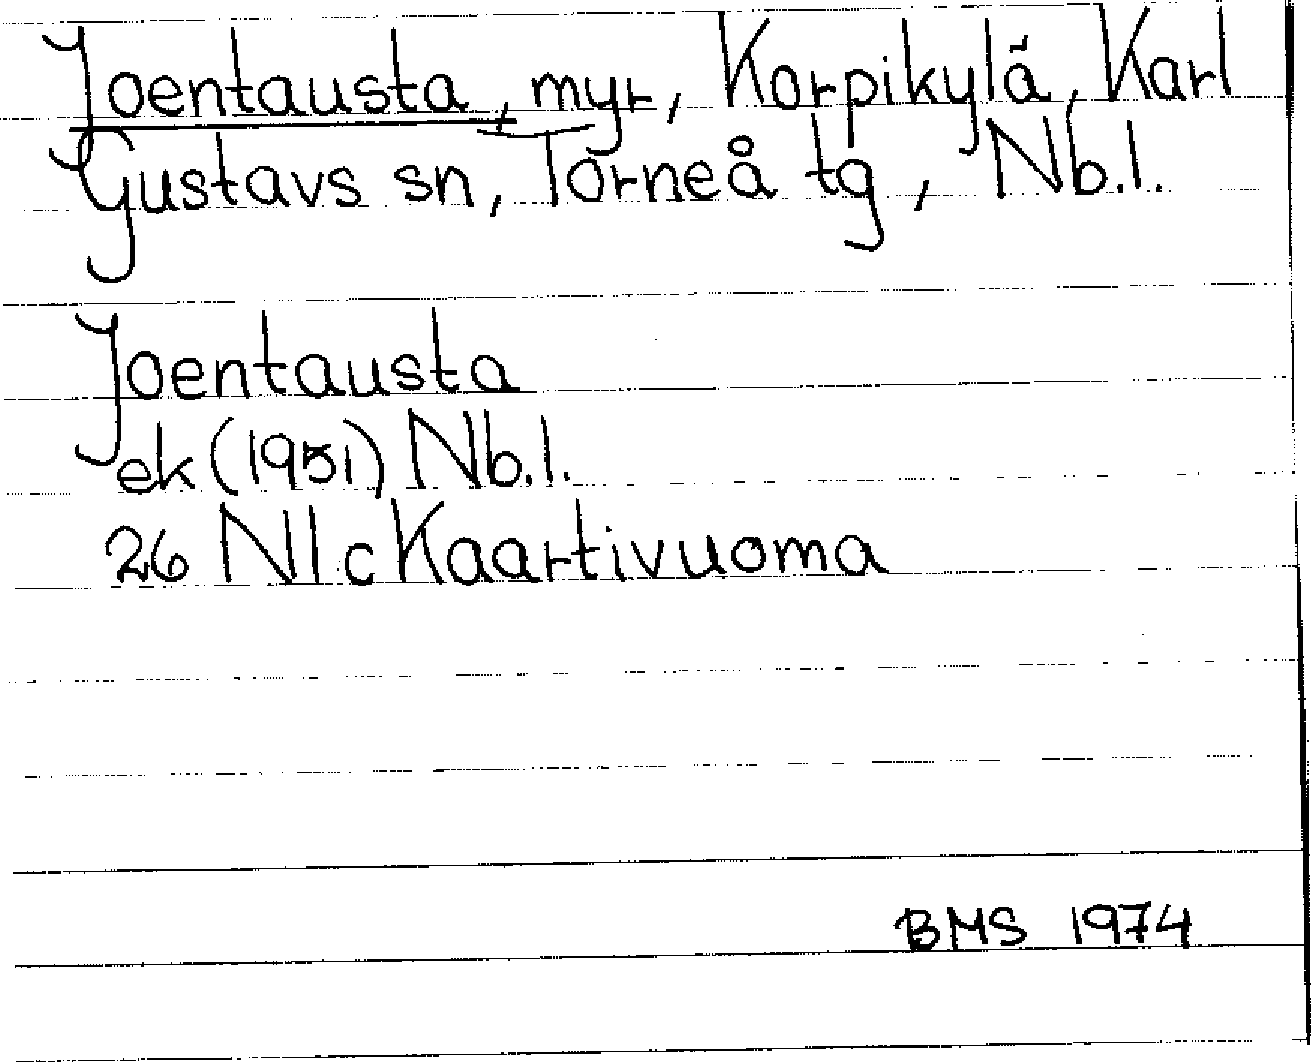 Joentausta, myr, Korpikylä, Karl
Gustavs sn, Torneå tg, Nb.l.
Joentausta
ek (1951) Nb.l.
26 Nl c Kaartivuoma
BMS 1974